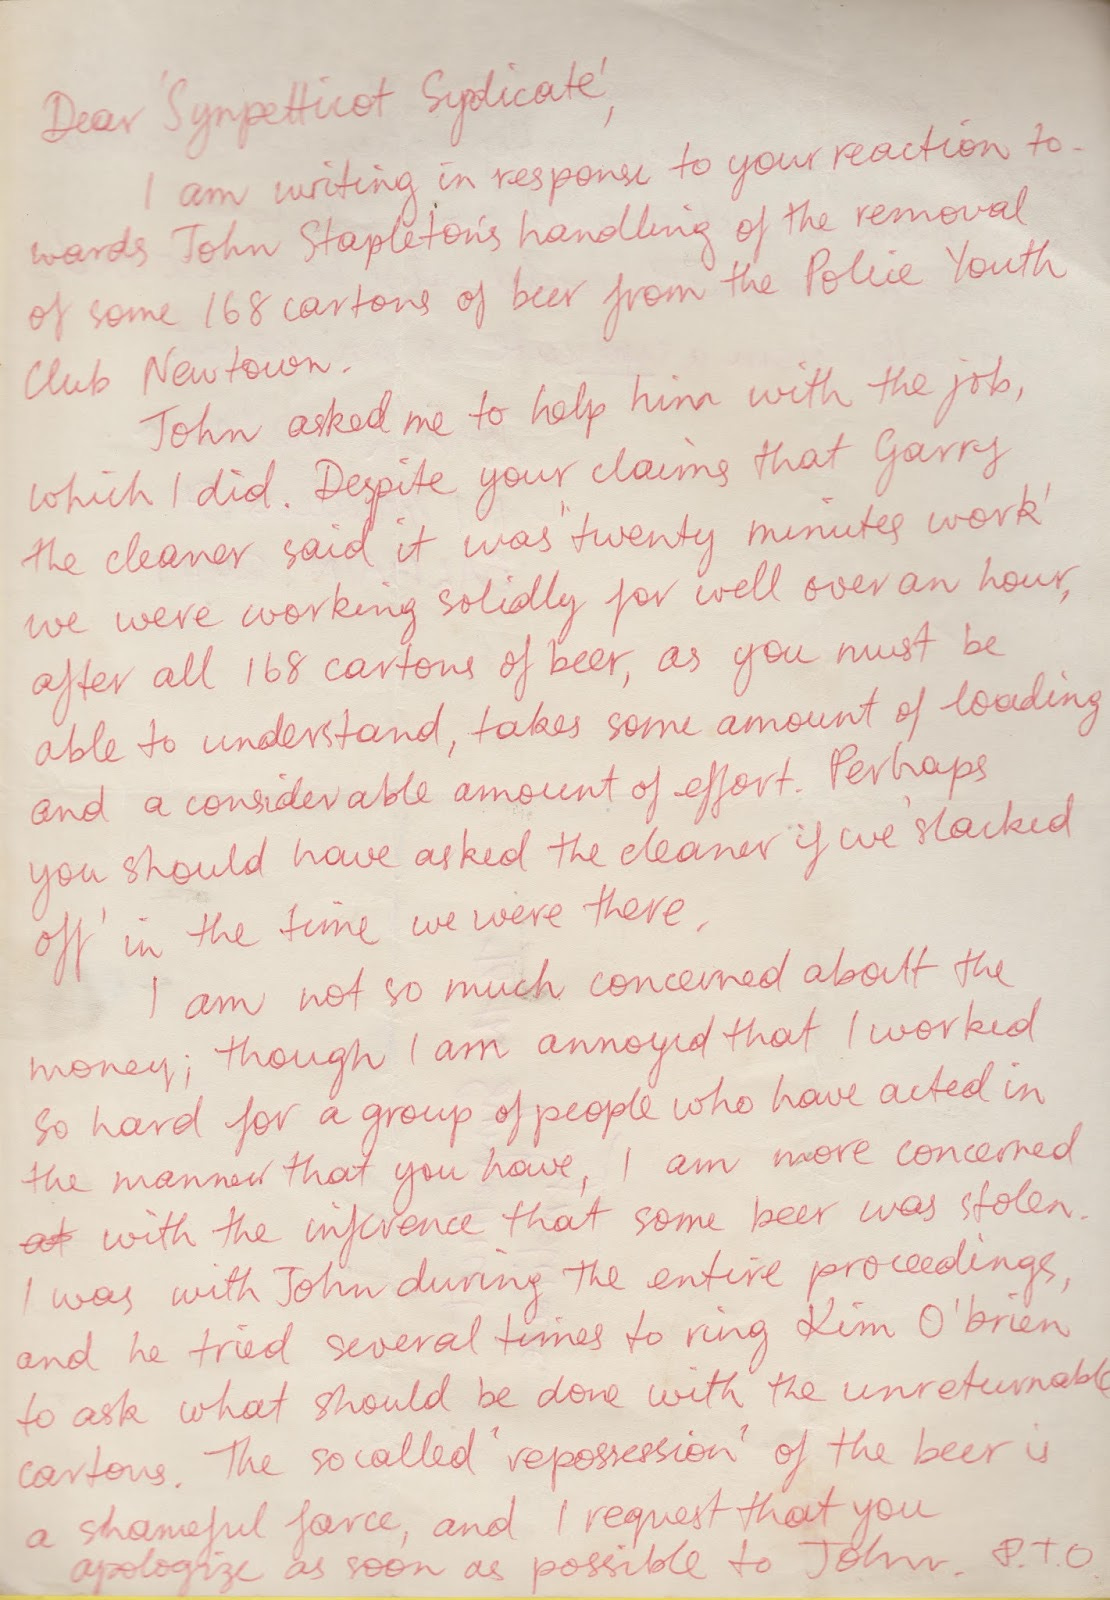 Dear 'Synpetticot Sydicate',
I am writing in response to your reaction to-
wards John Stapleton's handling of the removal
of some 168 cartons of beer from the Police Youth
Club Newtown.
John asked me to help him with the job,
which I did. Despite your claims that Garry
the cleaner said it was "twenty minutes work'
we were working solidly for well over an hour,
after all 168 cartons of beer, as you must be
able to understand, takes some amount of loading
and a considerable amount of effort. Perhaps
you should have asked the cleaner if we 'slacked
off' in the time we were there.
I am not so much concerned aboutt the
money; though I am annoyed that I worked
so hard for a group of people who have acted in
the manner that you have, I am more concerned
at with the inference that some beer was stolen.
I was with John during the entire proceedings,
and he tried several times to ring Kim O'brien
to ask what should be done with the unreturnable
cartons. The socalled 'repossession' of the beer is
a shameful farce, and I request that you
apologize as soon as possible to John. P.T.O.